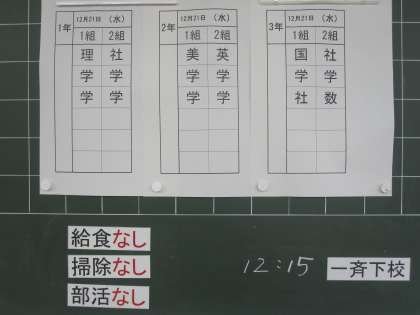 1年 12月21日 （水）
1組 2組
理 社
学 学
学 学
2年 12月21日 （水）
1組 2組
美 英
学 学
学 学
3年 12月21日 （水）
1組 2組
国 社
学 学
社 数
給食なし
掃除なし
部活なし
12:15 一斉下校